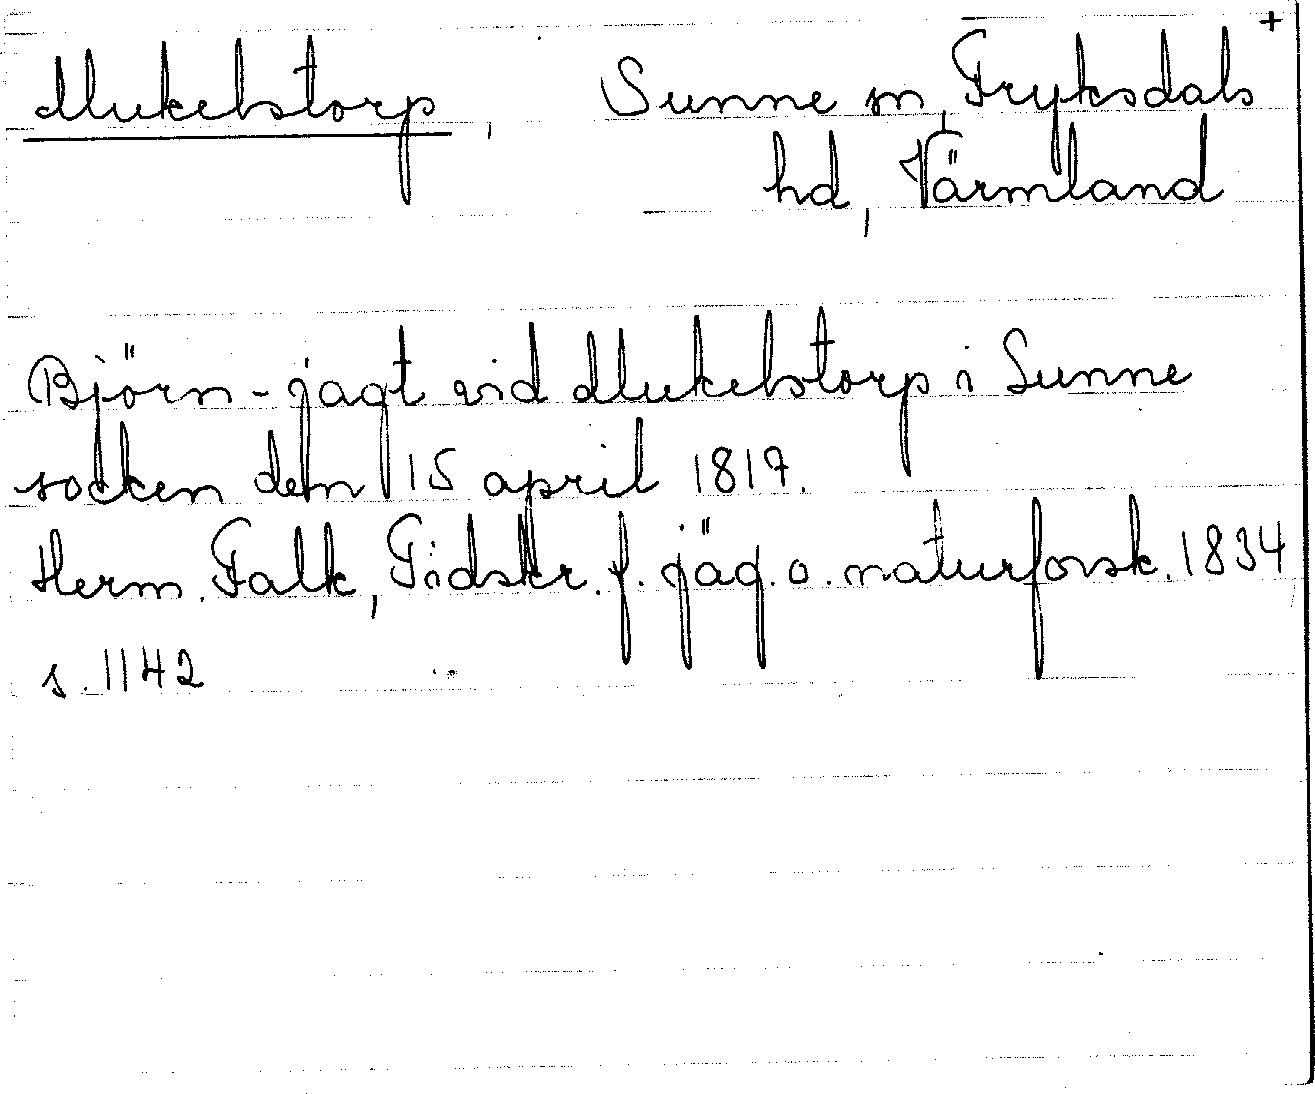 Mukelstorp, Sunne sn, Fryksdals +
hd, Värmland
Björn-jagt vid Mukelstorp i Sunne
socken den 15 april 1817.
Herm. Falk, Tidskr. f. jäg. o. naturforsk. 1834
s. 1142